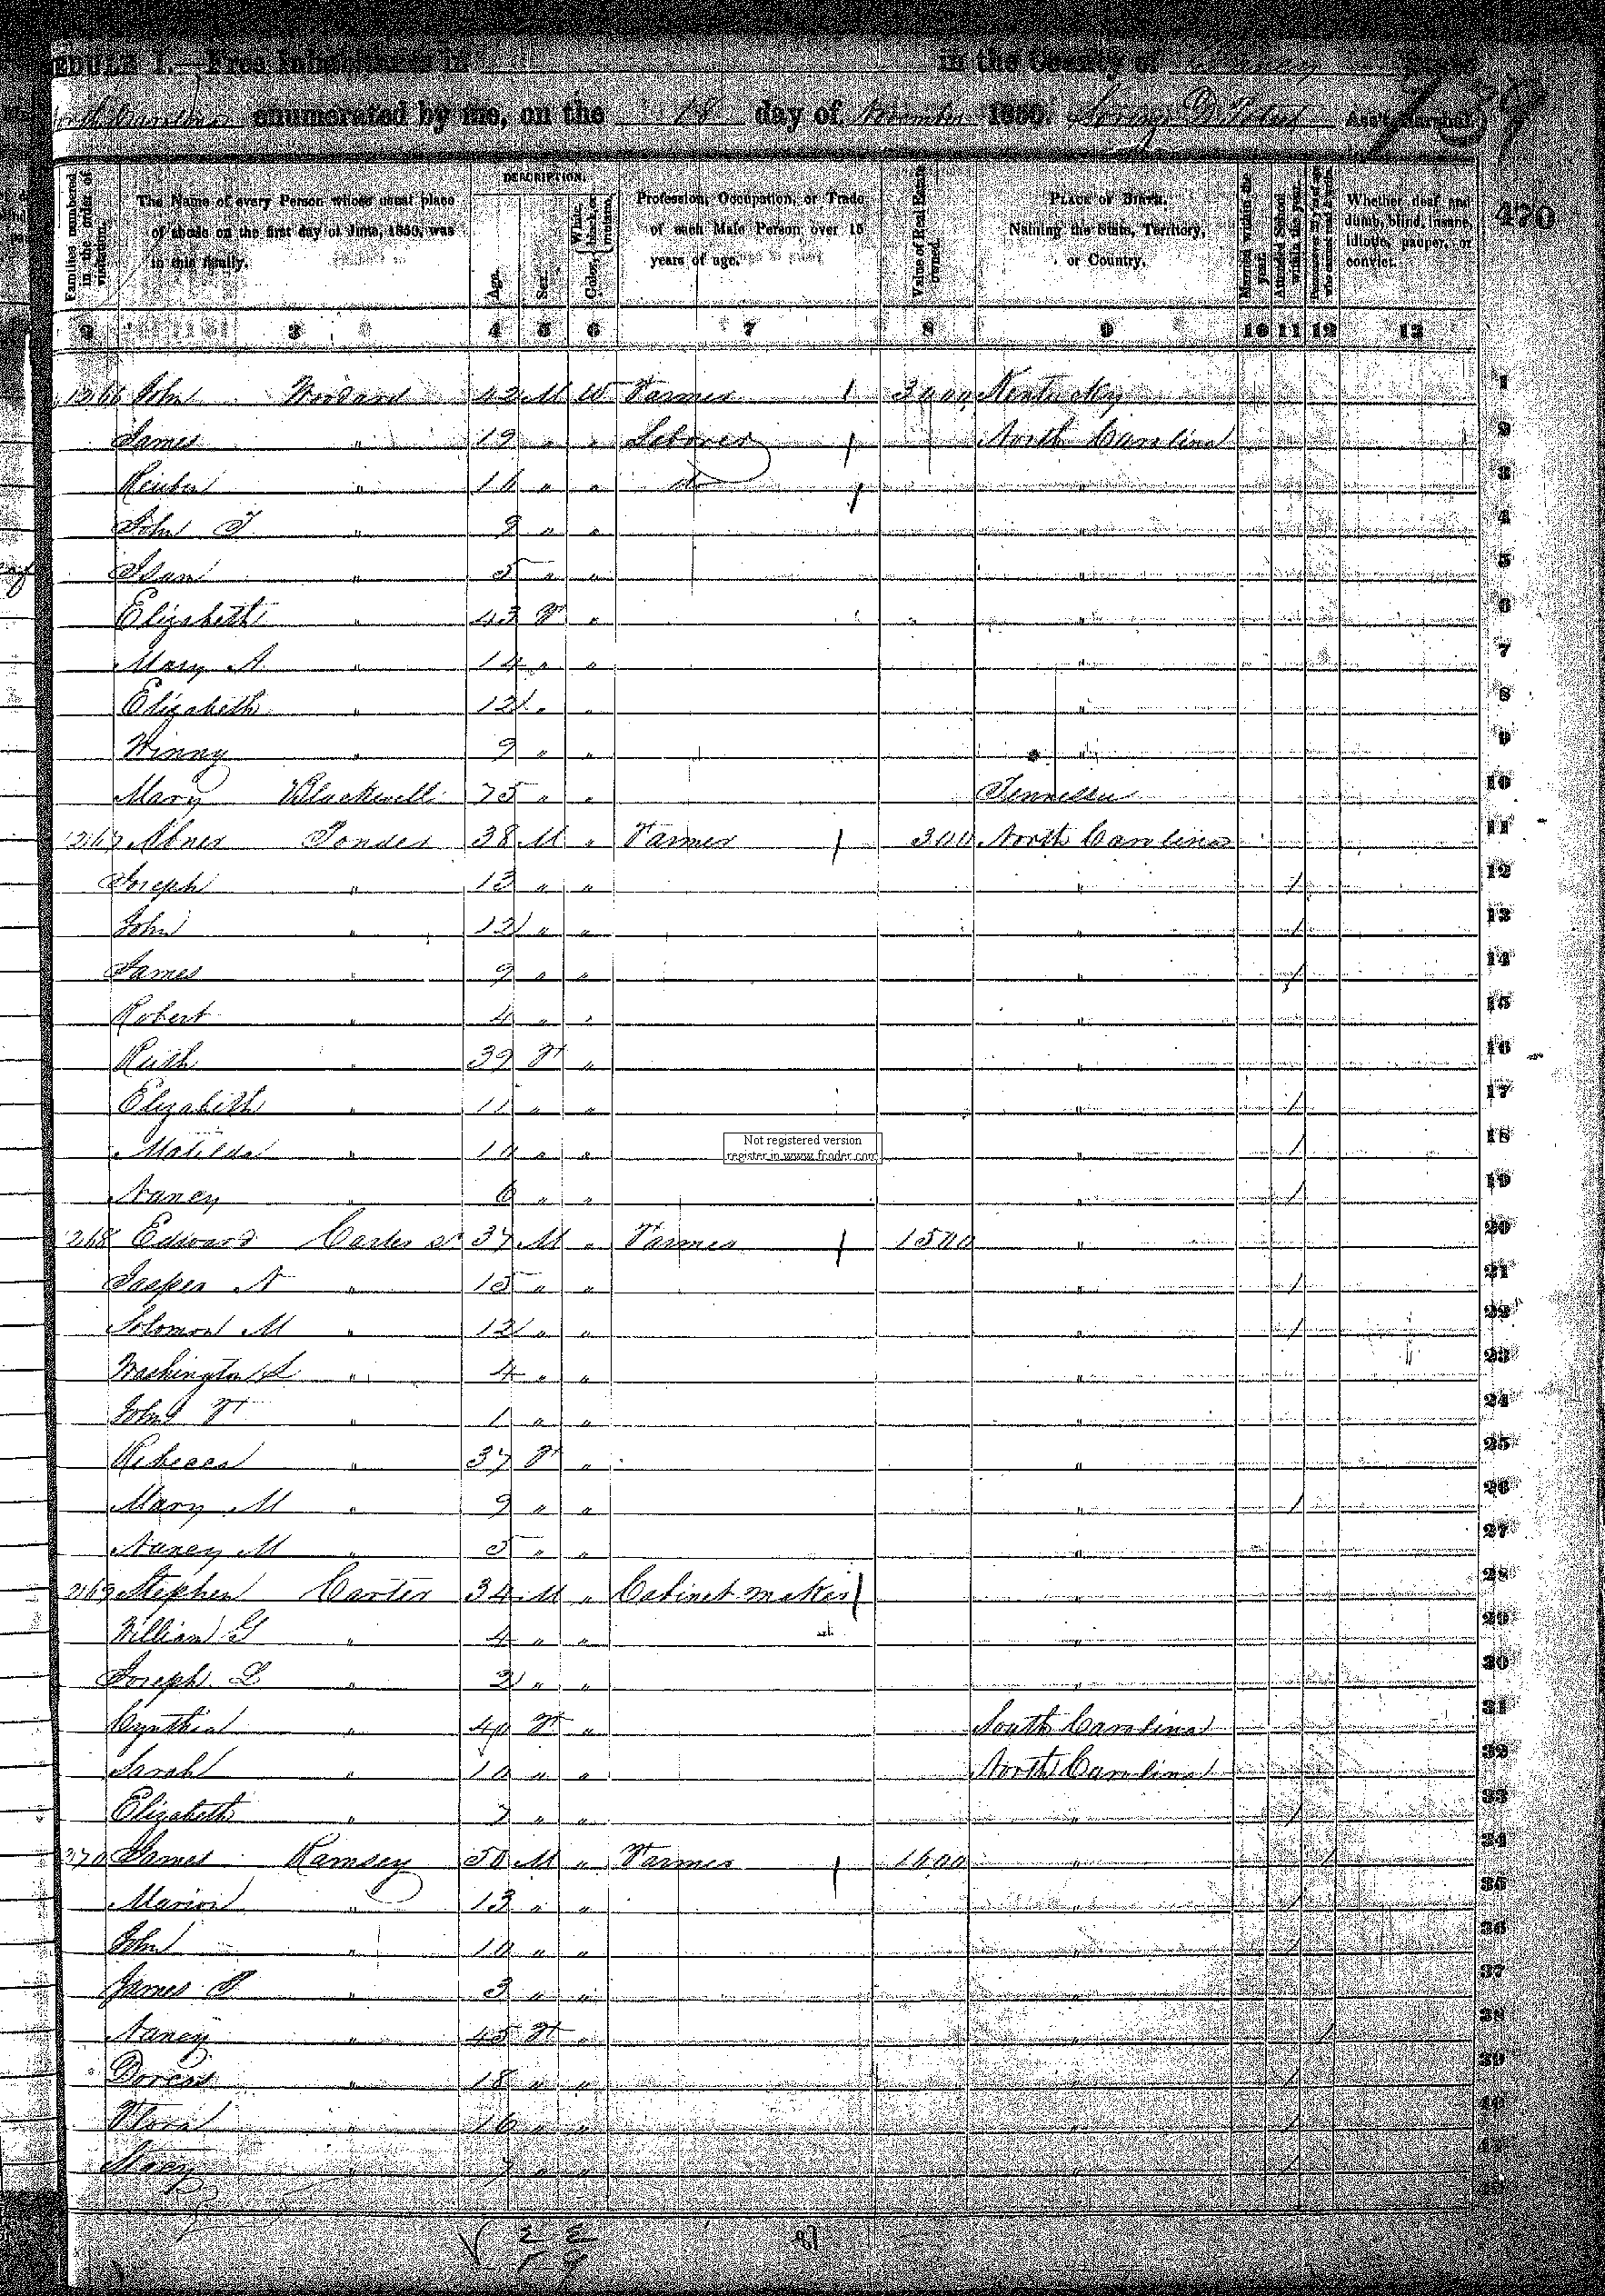 EDULE I.—Free Inhabitants in in the County of
enumerated by me, on the 18 day of November 1850. Ass't Marshal.
Families numbered in the order of visitation.
The Name of every Person whose usual place of abode on the first day of June, 1850, was in this family.
DESCRIPTION.
Age.
Sex.
Color, White, black, or mulatto.
Profession, Occupation, or Trade of each Male Person over 15 years of age.
Value of Real Estate owned.
PLACE OF BIRTH. Naming the State, Territory, or Country.
Married within the year.
Attended School within the year.
Whether deaf and dumb, blind, insane, idiotic, pauper, or convict.
470
2 3 4 5 6 7 8 9 10 11 12 13
1266 John 42 M W Farmer 3000 Kentucky 1
James " 19 " " Laborer North Carolina 2
Reuben " 16 " " do " 3
John T " 9 " " " 4
" 5 " " " 5
Elizabeth " 43 F " " 6
Mary A " 14 " " " 7
Elizabeth " 12 " " " 8
Winny " 9 " " " 9
Mary Blackwell 75 " " Tennessee 10
1267 Abner Ponder 38 M " Farmer 300 North Carolina 11
Joseph " 13 " " " / 12
John " 12 " " " / 13
James " 9 " " " / 14
Robert " 4 " " " 15
Ruth " 39 F " " 16
Elizabeth " 11 " " " / 17
Matilda " 10 " " " / 18
Not registered version
register in www.fcoder.com
Nancy " 6 " " " / 19
1268 Edward Carter 37 M " Farmer 1500 " 20
Jasper N " 15 " " " / 21
Solomon M " 12 " " " / 22
Washington " 4 " " " 23
John F " 1 " " " 24
Rebecca " 37 F " " 25
Mary M " 9 " " " / 26
Nancy M " 5 " " " 27
1269 Stephen Carter 34 M " Cabinet maker " 28
William G " 4 " " " 29
Joseph L " 2 " " " 30
Cynthia " 40 F " South Carolina 31
Sarah " 10 " " North Carolina 32
Elizabeth " 7 " " " / 33
1270 James Ramsey 50 M " Farmer 1600 " / 34
Marion " 13 " " " / 35
John " 10 " " " / 36
James " 3 " " " 37
Nancy " 45 F " " / 38
Dorcas " 18 " " " / 39
" 16 " " " / 40
" 7 " " " / 41